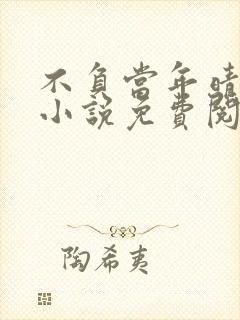 不負當年晴
小說免費閱
陶希夷